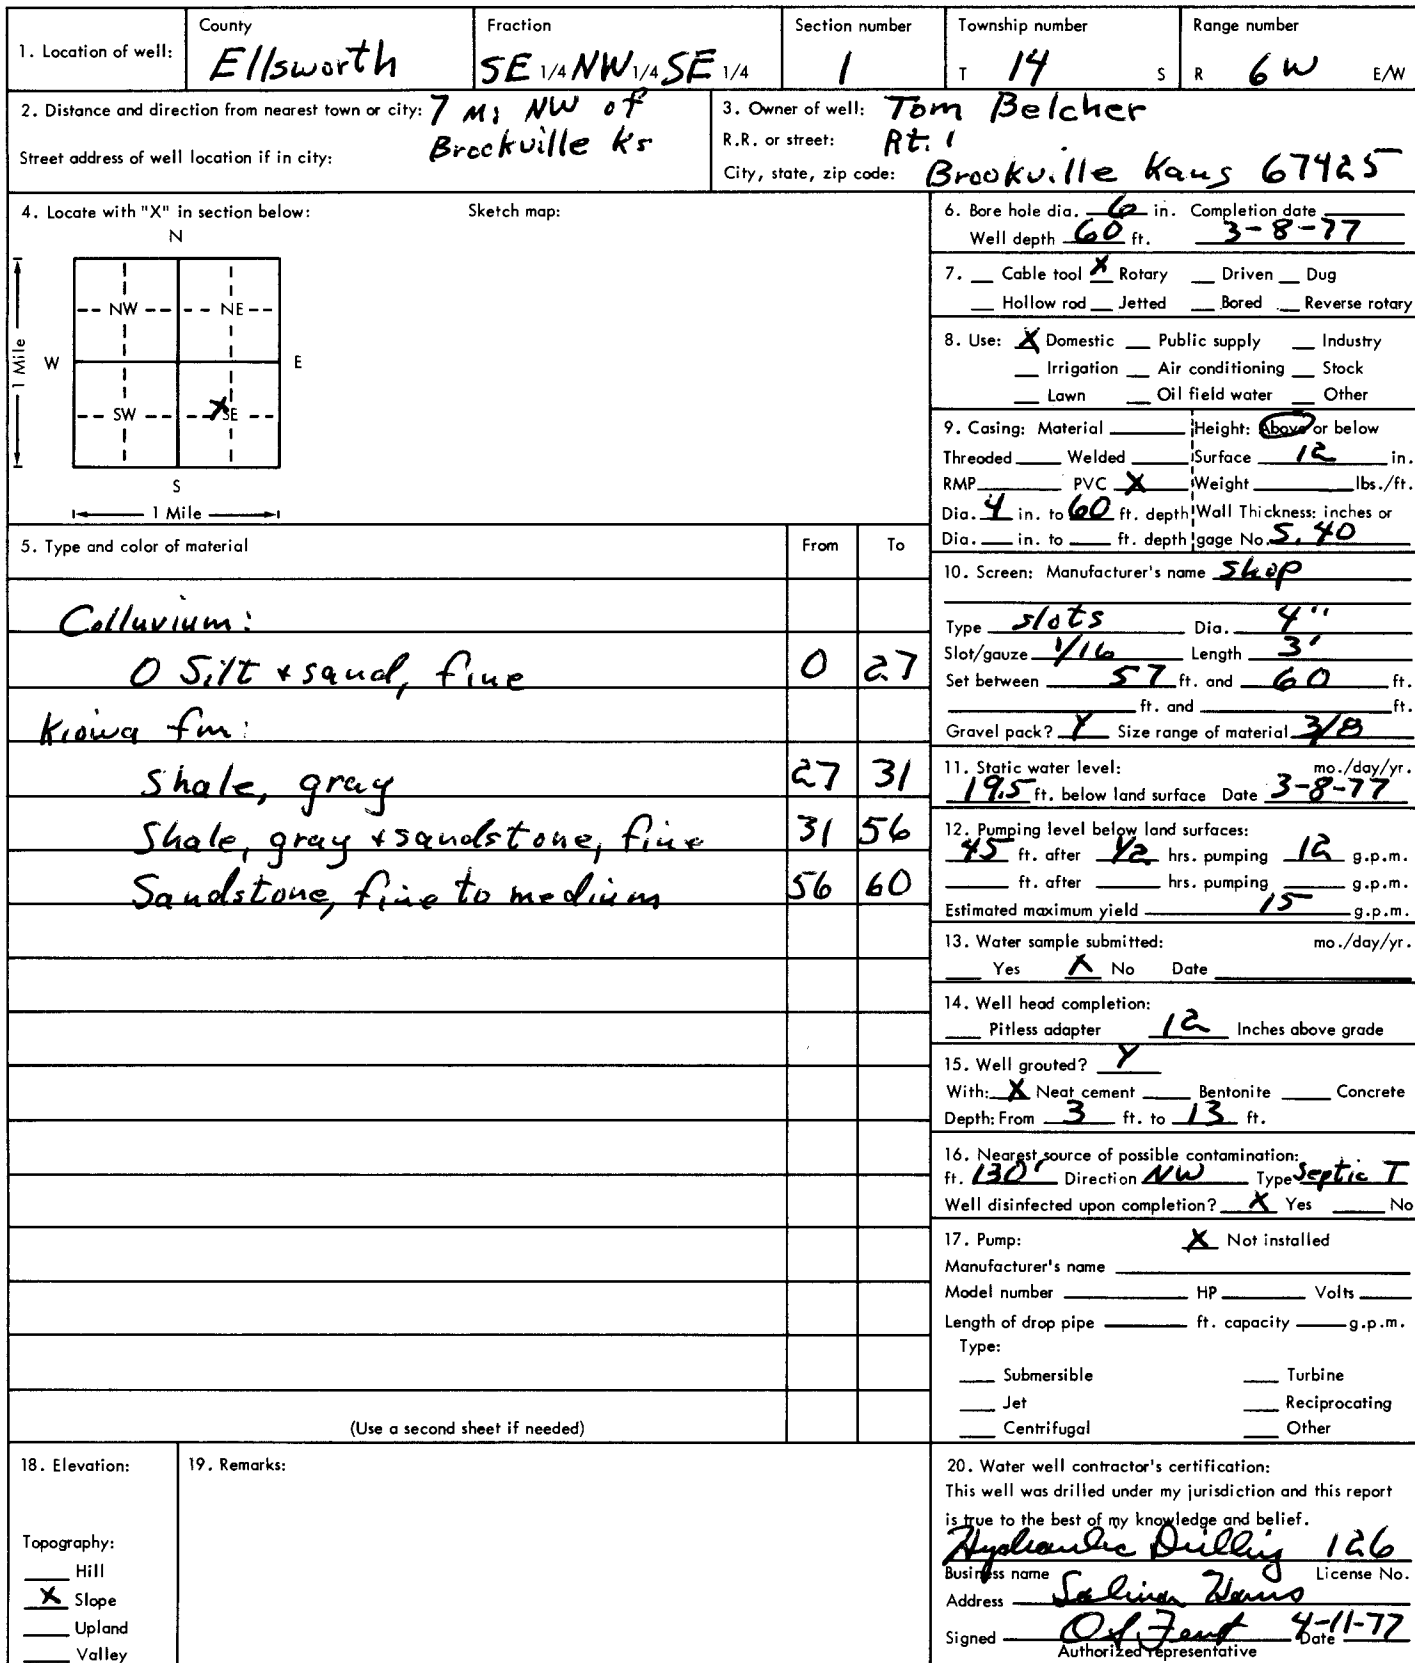 1. Location of well:
County
Ellsworth
Fraction
SE 1/4 NW 1/4 SE 1/4
Section number
1
Township number
T 14 S
Range number
R 6 W E/W
2. Distance and direction from nearest town or city: 7 Mi NW of
Brookville Ks
Street address of well location if in city:
3. Owner of well: Tom Belcher
R.R. or street: Rt. 1
City, state, zip code: Brookville Kans 67425
4. Locate with "X" in section below:
Sketch map:
N
NW NE
W E
SW X SE
S
1 Mile
1 Mile
5. Type and color of material From To
Colluvium:
O Silt + sand, fine 0 27
Kiowa fm:
Shale, gray 27 31
Shale, gray + sandstone, fine 31 56
Sandstone, fine to medium 56 60
(Use a second sheet if needed)
6. Bore hole dia. 6 in. Completion date
Well depth 60 ft. 3-8-77
7. Cable tool X Rotary Driven Dug
Hollow rod Jetted Bored Reverse rotary
8. Use: X Domestic Public supply Industry
Irrigation Air conditioning Stock
Lawn Oil field water Other
9. Casing: Material Height: Above or below
Threaded Welded Surface 12 in.
RMP PVC X Weight lbs./ft.
Dia. 4 in. to 60 ft. depth Wall Thickness: inches or
Dia. in. to ft. depth gage No. S. 40
10. Screen: Manufacturer's name Shop
Type slots Dia. 4"
Slot/gauze 1/16 Length 3'
Set between 57 ft. and 60 ft.
ft. and ft.
Gravel pack? Y Size range of material 3/8
11. Static water level: mo./day/yr.
19.5 ft. below land surface Date 3-8-77
12. Pumping level below land surfaces:
45 ft. after 1/2 hrs. pumping 12 g.p.m.
ft. after hrs. pumping g.p.m.
Estimated maximum yield 15 g.p.m.
13. Water sample submitted: mo./day/yr.
Yes X No Date
14. Well head completion:
Pitless adapter 12 Inches above grade
15. Well grouted? Y
With: X Neat cement Bentonite Concrete
Depth: From 3 ft. to 13 ft.
16. Nearest source of possible contamination:
ft. 130' Direction NW Type Septic T
Well disinfected upon completion? X Yes No
17. Pump: X Not installed
Manufacturer's name
Model number HP Volts
Length of drop pipe ft. capacity g.p.m.
Type:
Submersible Turbine
Jet Reciprocating
Centrifugal Other
18. Elevation:
Topography:
Hill
X Slope
Upland
Valley
19. Remarks:
20. Water well contractor's certification:
This well was drilled under my jurisdiction and this report
is true to the best of my knowledge and belief.
Hydraulic Drilling 126
Business name License No.
Address Salina Kans
Signed 4-11-77 Date
Authorized representative